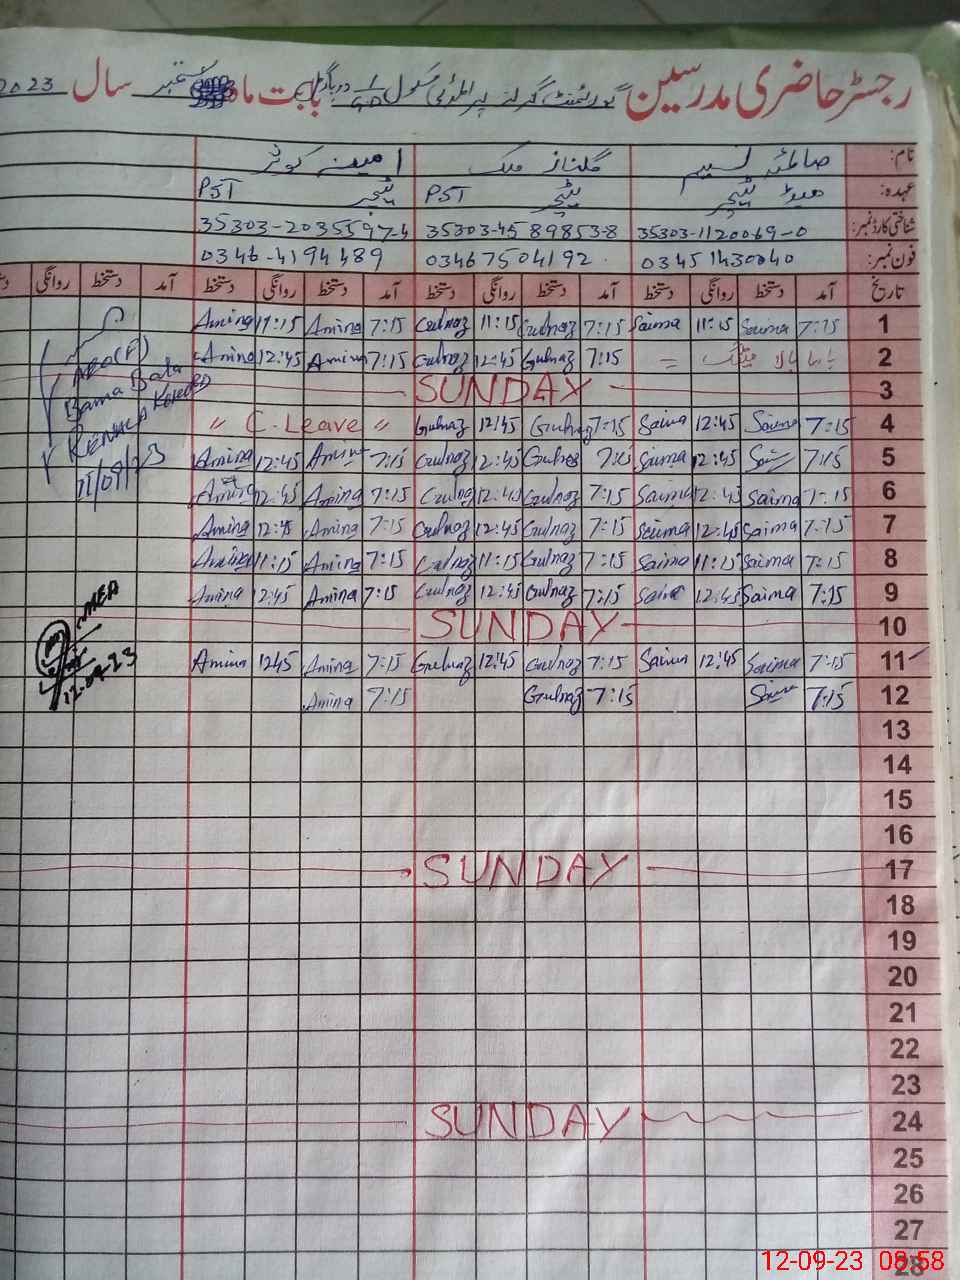 رجسٹر حاضری مدرسین گورنمنٹ گرلز پرائمری سکول بابت ماہ ستمبر سال 2023
نام: صائمہ نسیم گلناز ملک امینہ کوثر
عہدہ: ہیڈ ٹیچر ٹیچر PST ٹیچر PST
شناختی کارڈ نمبر: 35303-1120069-0 35303-4589853-8 35303-2035597-4
فون نمبر: 03451430040 03467504192 0346-4194489
تاریخ آمد دستخط روانگی دستخط آمد دستخط روانگی دستخط آمد دستخط روانگی دستخط آمد دستخط روانگی
1 7:15 Saima 11:15 Saima 7:15 Gulnaz 11:15 Gulnaz 7:15 Amina 11:15 Amina
2 7:15 Gulnaz 12:45 Gulnaz 7:15 Amina 12:45 Amina
3 SUNDAY
4 7:15 Saima 12:45 Saima 7:15 Gulnaz 12:45 Gulnaz " C. Leave "
5 7:15 Saima 12:45 Saima 7:15 Gulnaz 12:45 Gulnaz 7:15 Amina 12:45 Amina
6 7:15 Saima 12:45 Saima 7:15 Gulnaz 12:45 Gulnaz 7:15 Amina 12:45 Amina
7 7:15 Saima 12:45 Saima 7:15 Gulnaz 12:45 Gulnaz 7:15 Amina 12:45 Amina
8 7:15 Saima 11:15 Saima 7:15 Gulnaz 11:15 Gulnaz 7:15 Amina 11:15 Amina
9 7:15 Saima 12:45 Saima 7:15 Gulnaz 12:45 Gulnaz 7:15 Amina 12:45 Amina
10 SUNDAY
11 7:15 Saima 12:45 Saima 7:15 Gulnaz 12:45 Gulnaz 7:15 Amina 1245 Amina
12 7:15 Saima 7:15 Gulnaz 7:15 Amina
13
14
15
16
17 SUNDAY
18
19
20
21
22
23
24 SUNDAY
25
26
27
28
11/09/23
MEA
12-09-23
12-09-23 08:58